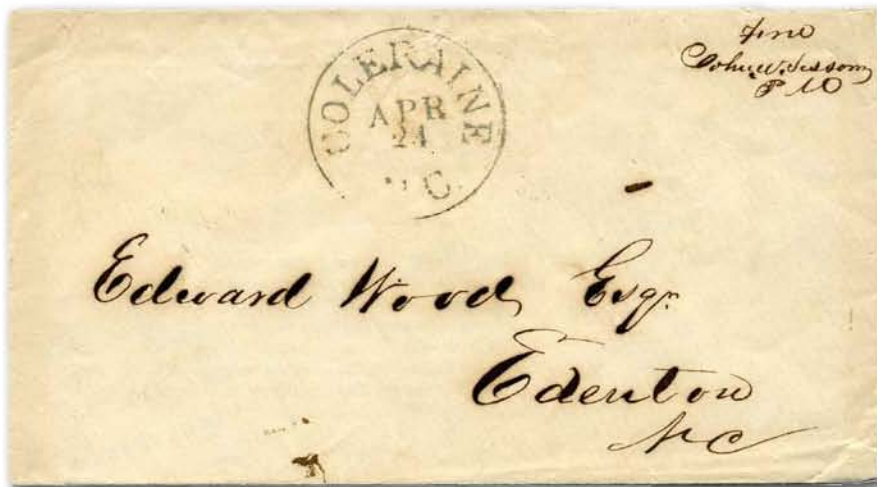 COLERAINE
APR
24
C.
Free
John W. Sessoms
P M
Edward Wood, Esqr.
Edenton
N C